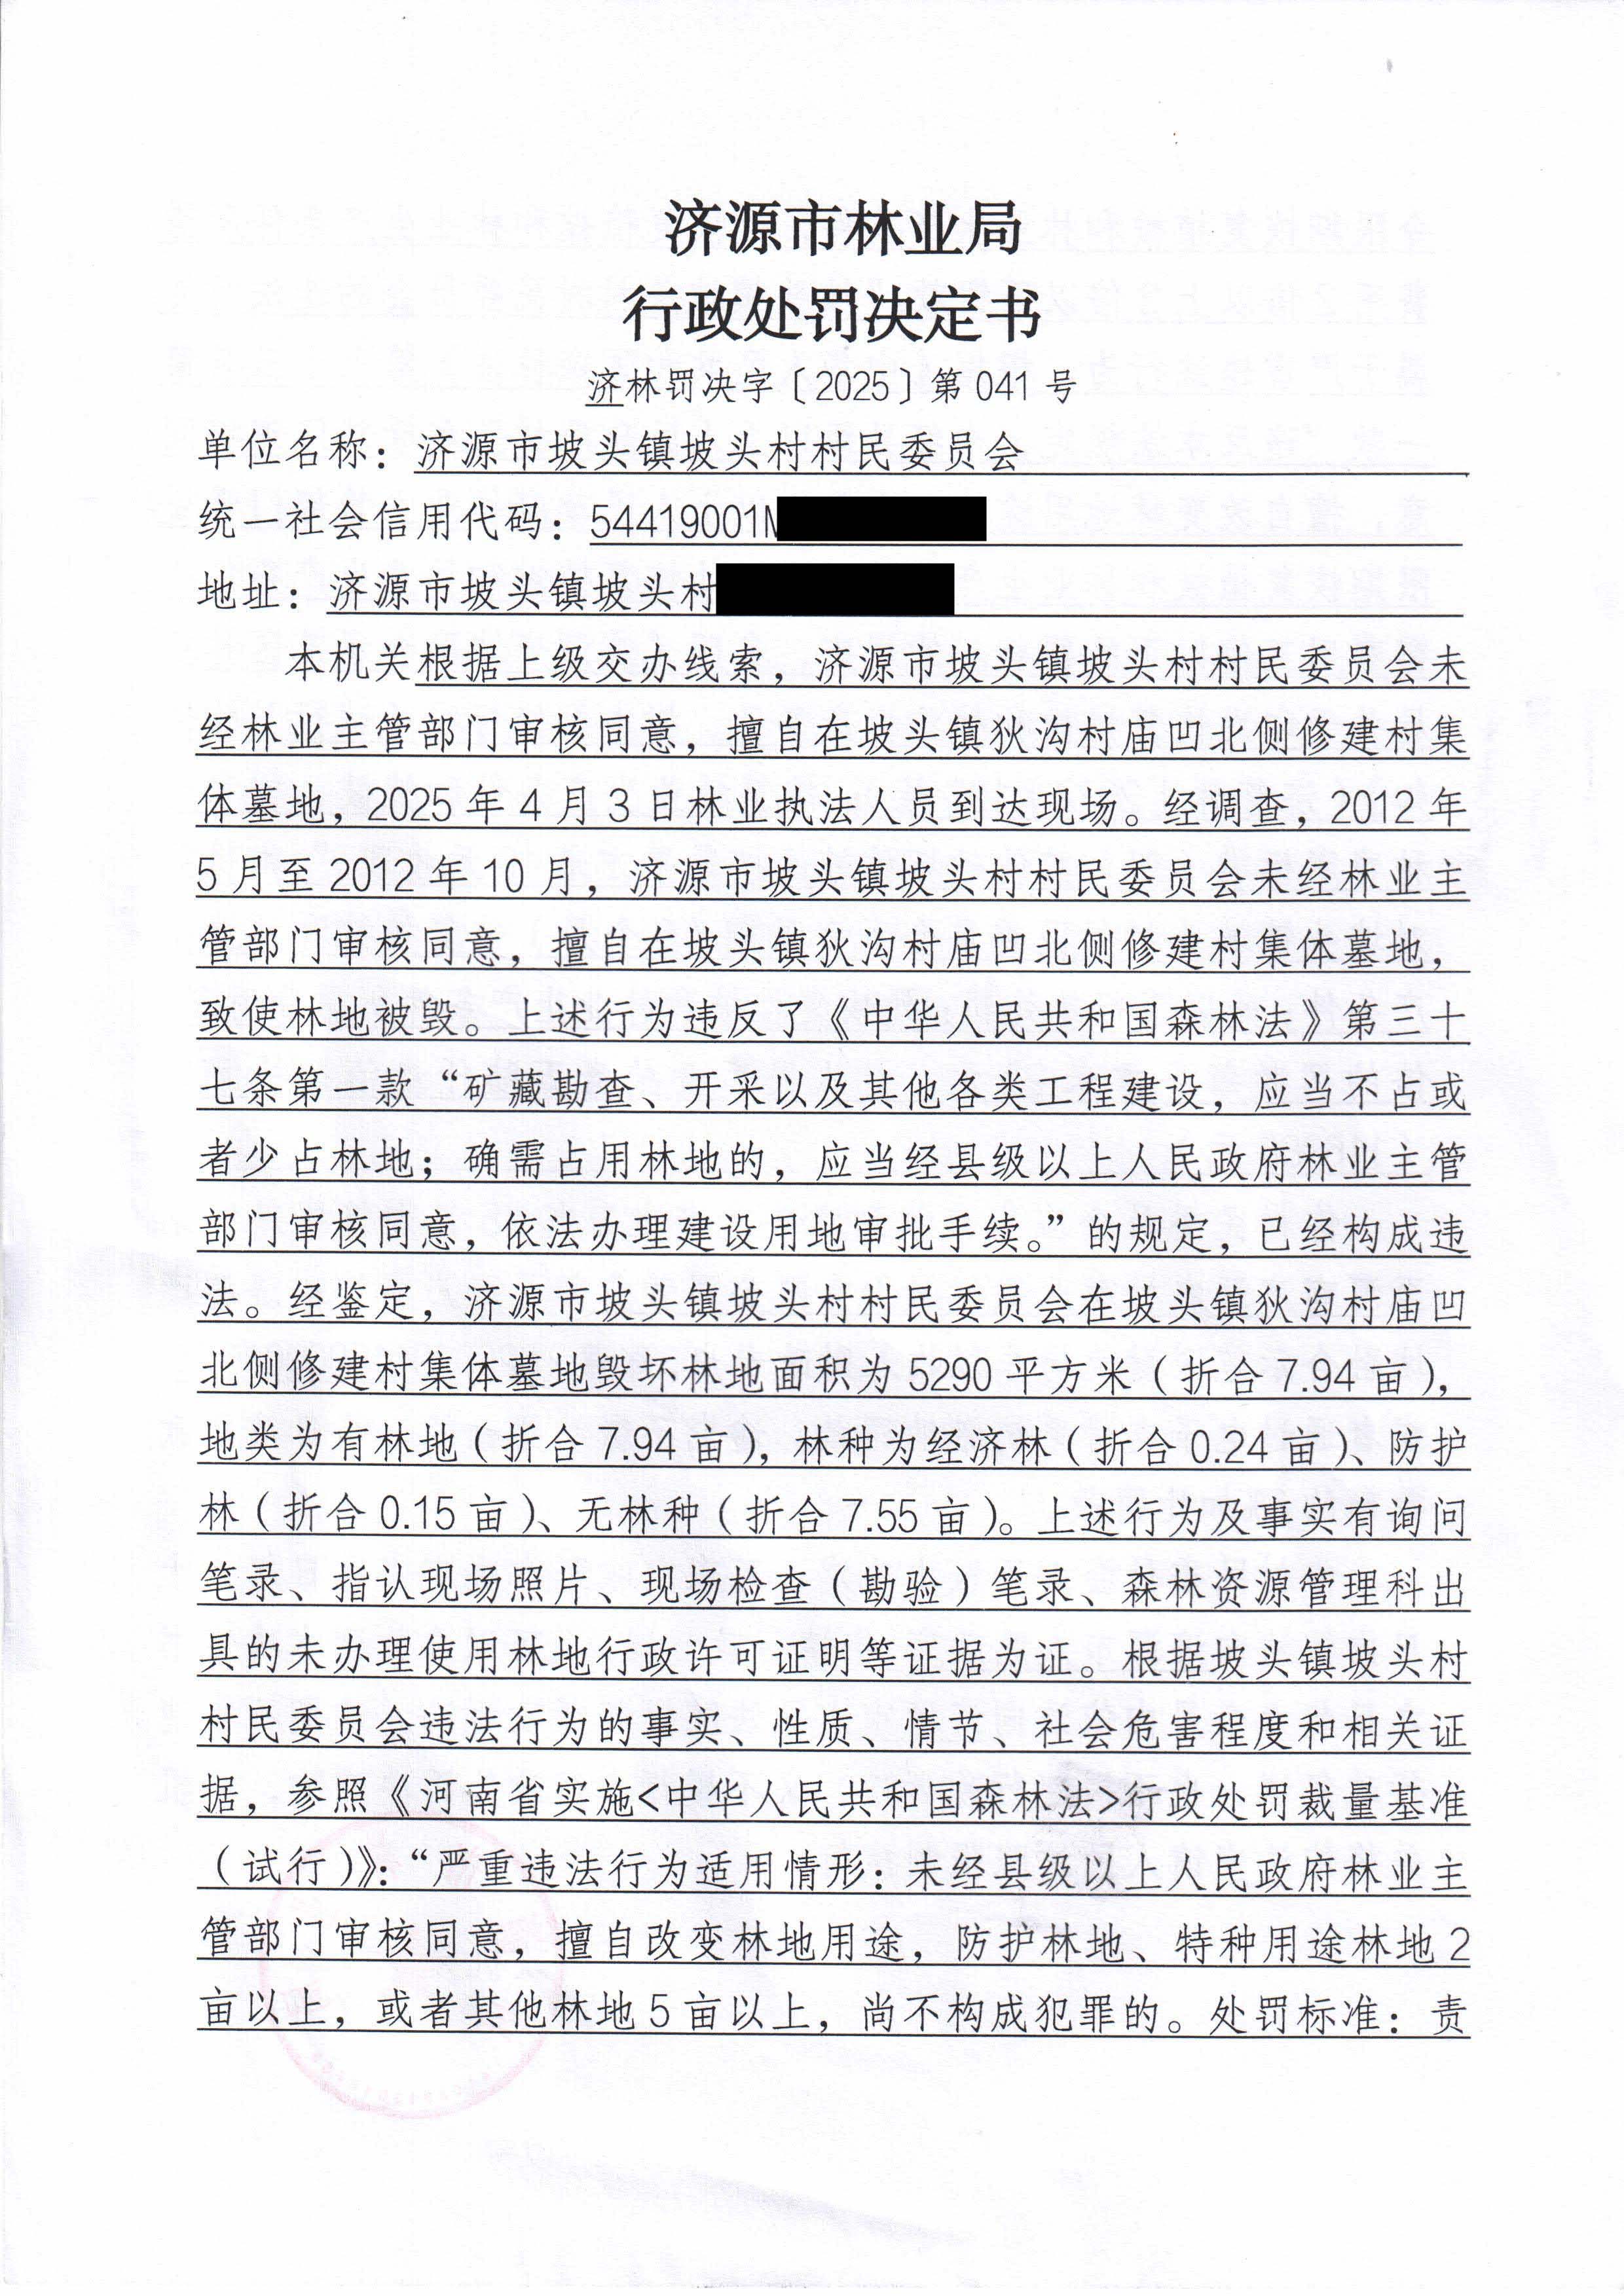 济源市林业局
行政处罚决定书
济林罚决字〔2025〕第 041 号
单位名称：济源市坡头镇坡头村村民委员会
统一社会信用代码：54419001M
地址：济源市坡头镇坡头村
本机关根据上级交办线索，济源市坡头镇坡头村村民委员会未
经林业主管部门审核同意，擅自在坡头镇狄沟村庙凹北侧修建村集
体墓地，2025 年 4 月 3 日林业执法人员到达现场。经调查，2012 年
5 月至 2012 年 10 月，济源市坡头镇坡头村村民委员会未经林业主
管部门审核同意，擅自在坡头镇狄沟村庙凹北侧修建村集体墓地，
致使林地被毁。上述行为违反了《中华人民共和国森林法》第三十
七条第一款“矿藏勘查、开采以及其他各类工程建设，应当不占或
者少占林地；确需占用林地的，应当经县级以上人民政府林业主管
部门审核同意，依法办理建设用地审批手续。”的规定，已经构成违
法。经鉴定，济源市坡头镇坡头村村民委员会在坡头镇狄沟村庙凹
北侧修建村集体墓地毁坏林地面积为 5290 平方米（折合 7.94 亩），
地类为有林地（折合 7.94 亩），林种为经济林（折合 0.24 亩）、防护
林（折合 0.15 亩）、无林种（折合 7.55 亩）。上述行为及事实有询问
笔录、指认现场照片、现场检查（勘验）笔录、森林资源管理科出
具的未办理使用林地行政许可证明等证据为证。根据坡头镇坡头村
村民委员会违法行为的事实、性质、情节、社会危害程度和相关证
据，参照《河南省实施<中华人民共和国森林法>行政处罚裁量基准
（试行）》：“严重违法行为适用情形：未经县级以上人民政府林业主
管部门审核同意，擅自改变林地用途，防护林地、特种用途林地 2
亩以上，或者其他林地 5 亩以上，尚不构成犯罪的。处罚标准：责